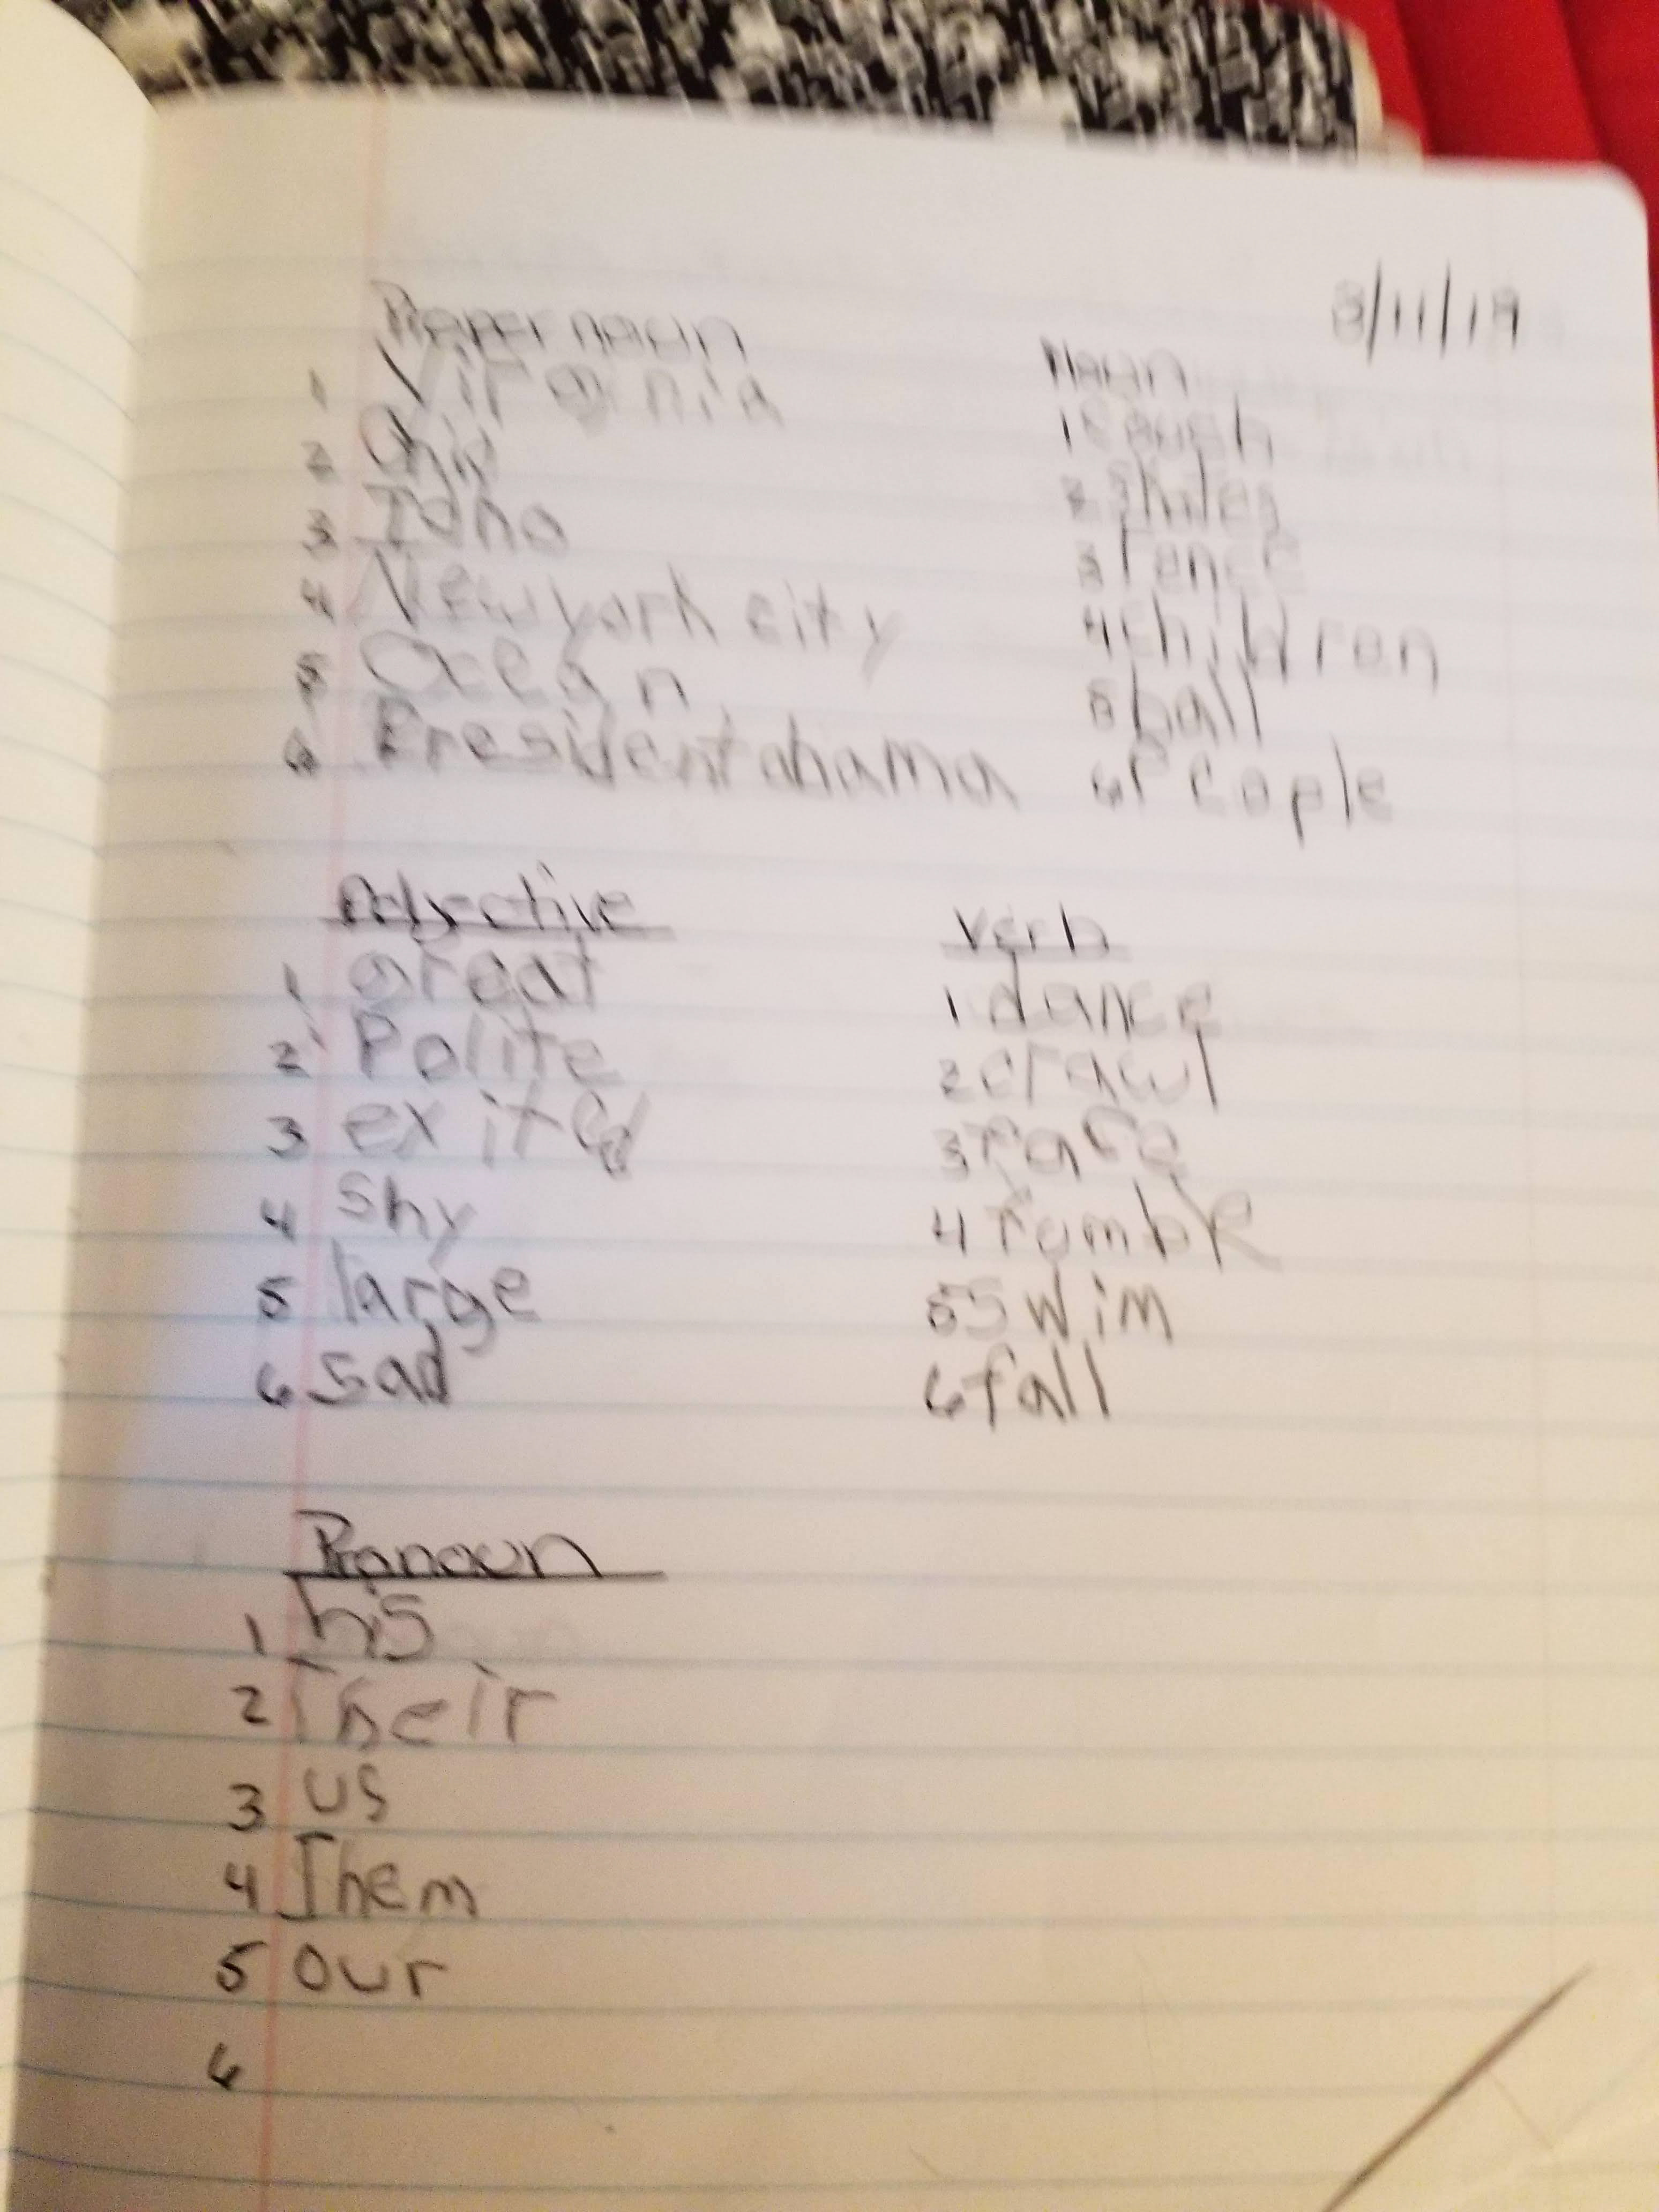 8/11/19
Proper noun
1 Virginia
2 Ohio
3 Idaho
4 New york city
5 Ocean
6 President obama
Noun
1 Couch
2
3 fence
4 children
5 ball
6 People
Adjective
1 great
2 Polite
3 exited
4 shy
5 large
6 sad
Verb
1 dance
2 crawl
3 race
4
5 Swim
6 fall
Pronoun
1 his
2 Their
3 us
4 Them
5 our
6